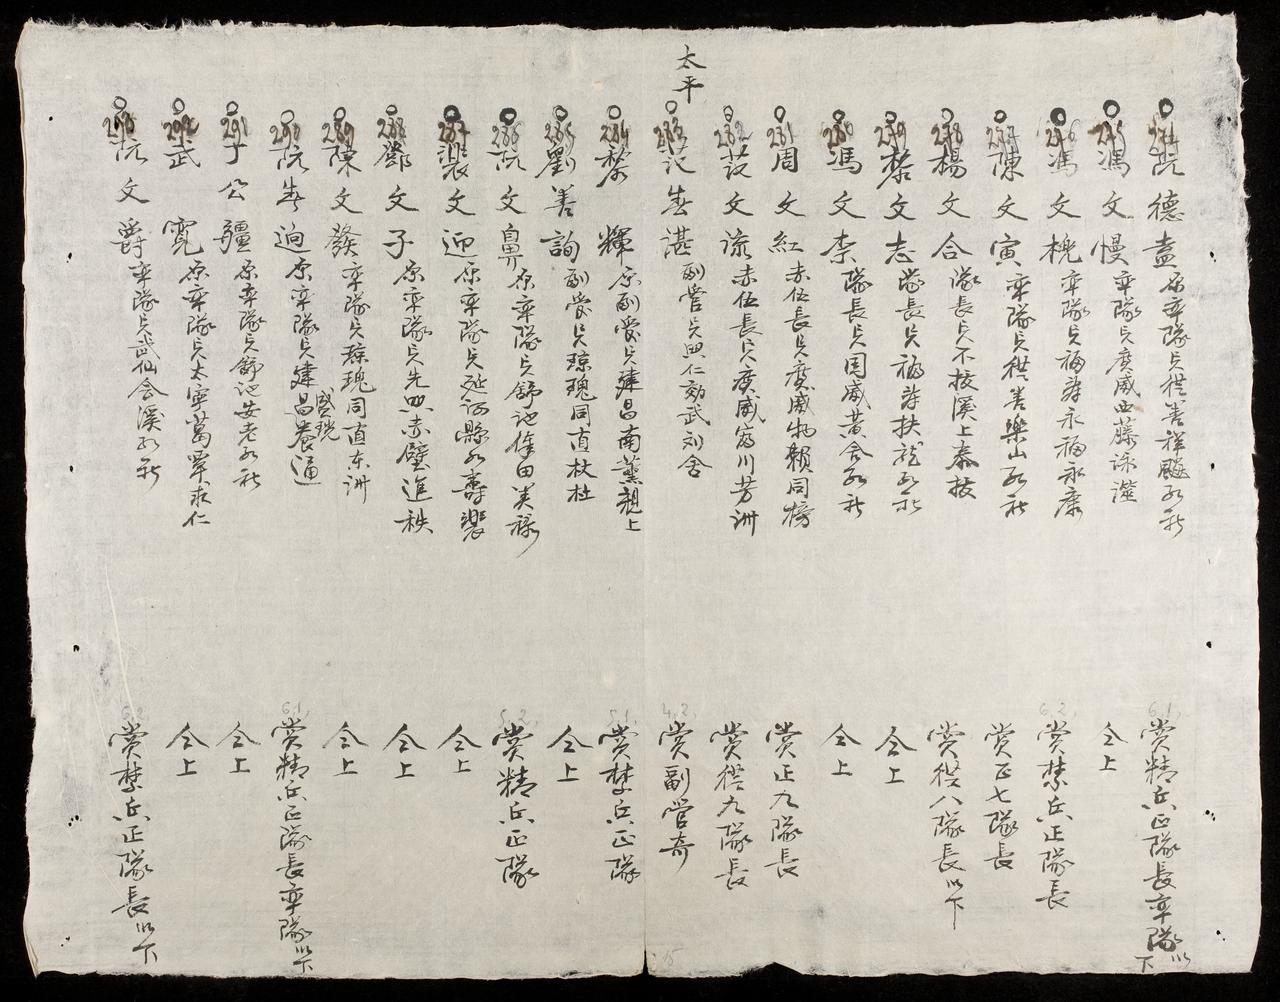 274 阮德盡原率隊兵從善祥𩔗社 賞精兵正隊長率隊以下
275 馮文慢率隊兵廣威西藤泳澨 仝上
276 馮文槐率隊兵福壽永福永康 賞禁兵正隊長
277 陳文寅率隊兵從善樂山社 賞正七隊長
278 楊文合隊長兵不拔溪上泰拔 賞從八隊長以下
279 黎文志隊長兵福壽扶龍社 仝上
280 馮文李隊長兵国威黃舍社 仝上
281 周文紅赤伍長兵廣威物賴同榜 賞正九隊長
282 范文流赤伍長兵廣威富川芳洲 賞從九隊長
太平
283 范春湛副管兵興仁効武刘舍 賞副管奇
284 黎輝原副管兵建昌南薰親上 賞禁兵正隊
285 劉善詢副管兵瓊瑰同直杖杜 仝上
286 阮文鼻原率隊兵舒池徐田美祿 賞精兵正隊
287 裴文迎原率隊兵延河縣社壽裴 仝上
288 鄧文子原率隊兵先興赤壁進秩 仝上
289 陳文發率隊兵瓊瑰同直东洲 仝上
290 阮春迥原率隊兵建昌養通 賞精兵正隊長率隊以下
291 丁公疆原率隊兵舒池安老社 仝上
292 武寬原率隊兵太寧葛畢求仁 仝上
293 阮文爵率隊兵武仙会溪社 賞禁兵正隊長以下